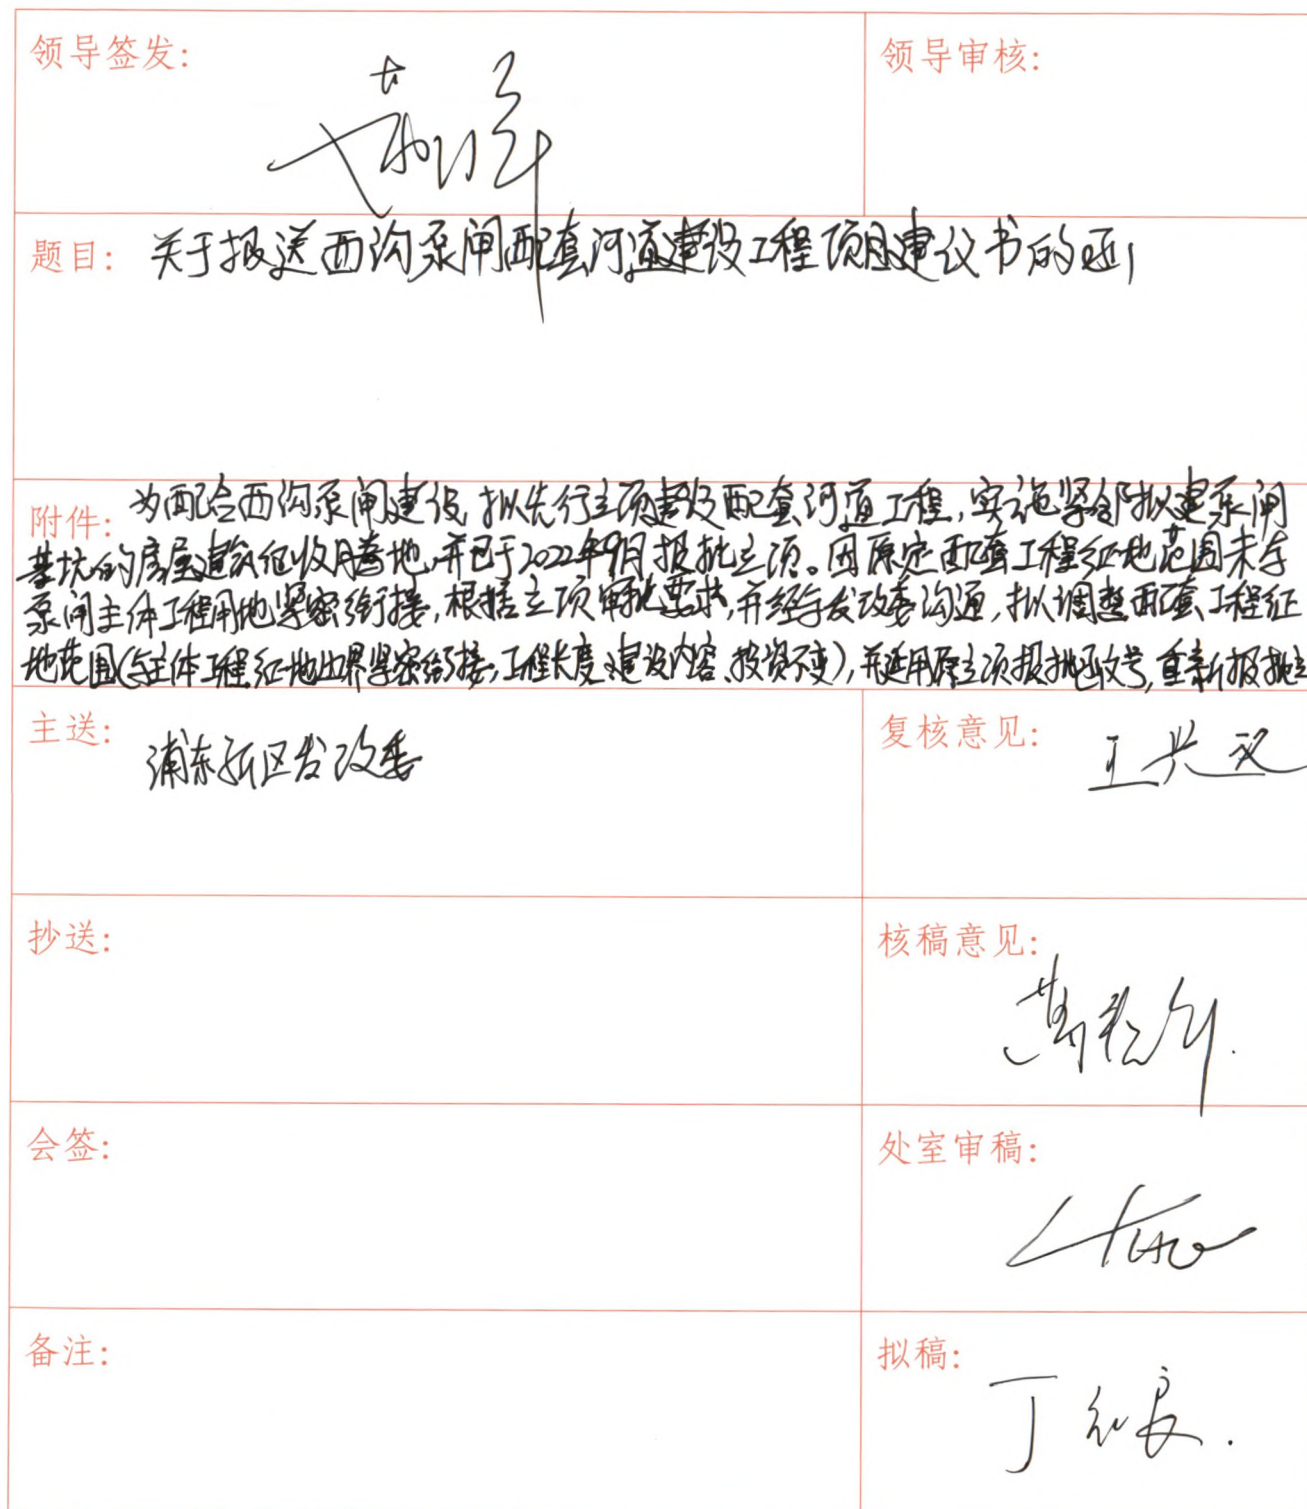 领导签发:
领导审核:
题目: 关于报送西沟泵闸配套河道建设工程项目建议书的函
附件: 为配合西沟泵闸建设,拟先行立项建设配套河道工程,实施紧邻拟建泵闸
基坑的房屋建筑征收腾地,并已于2022年9月报批立项。因原定配套工程征地范围未与
泵闸主体工程用地紧密衔接,根据立项审批要求,并经与发改委沟通,拟调整配套工程征
地范围(与主体工程征地边界紧密衔接,工程长度、建设内容、投资不变),并延用原立项报批函文号,重新报批立
主送: 浦东新区发改委
复核意见: 王兴
抄送:
核稿意见:
会签:
处室审稿:
备注:
拟稿: 丁